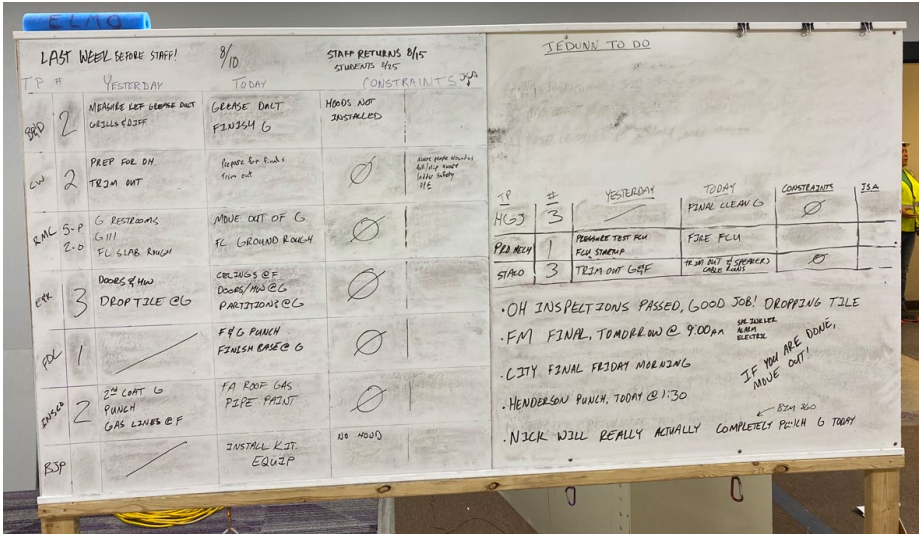 ELMO
LAST WEEK BEFORE STAFF!
8/10
STAFF RETURNS 8/15
STUDENTS 8/25
TP # YESTERDAY TODAY CONSTRAINTS JSA
BRD 2
MEASURE KEF GREASE DUCT
GRILLS & DIFF
GREASE DUCT
FINISH G
HOODS NOT
INSTALLED
CW 2
PREP FOR OH.
TRIM OUT
Prepare for finals
Trim out
Ø
ladder safety
RMC 5-P
2-0
G RESTROOMS
G111
FC SLAB ROUGH
MOVE OUT OF G
FC GROUND ROUGH
Ø
3
DOORS & HW
DROP TILE @ G
CELINGS @ F
DOORS/HW @ G
PARTITIONS @ G
Ø
PDL 1
F & G PUNCH
FINISH BASE @ G
Ø
INSCO 2
2ND COAT G
PUNCH
GAS LINES @ F
FA ROOF GAS
PIPE PAINT
Ø
BJP
INSTALL KIT.
EQUIP
NO HOOD
JE DUNN TO DO
TP # YESTERDAY TODAY CONSTRAINTS JSA
HGJ 3
FINAL CLEAN G
Ø
PRO MECH 1
PRESSURE TEST FCU
FCU STARTUP
FIRE FCU
STACO 3
TRIM OUT G&F
TRIM OUT & SPEAKERS
CABLE RUNS
Ø
• OH INSPECTIONS PASSED, GOOD JOB! DROPPING TILE
• FM FINAL, TOMORROW @ 9:00AM
SPRINKLER
ALARM
ELECTRIC
• CITY FINAL FRIDAY MORNING
IF YOU ARE DONE,
MOVE OUT!
• HENDERSON PUNCH, TODAY @ 1:30
BIM 360
• NICK WILL REALLY ACTUALLY COMPLETELY PUNCH G TODAY